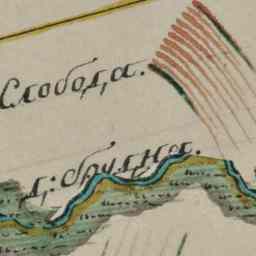 Слобода.
д: брудна.